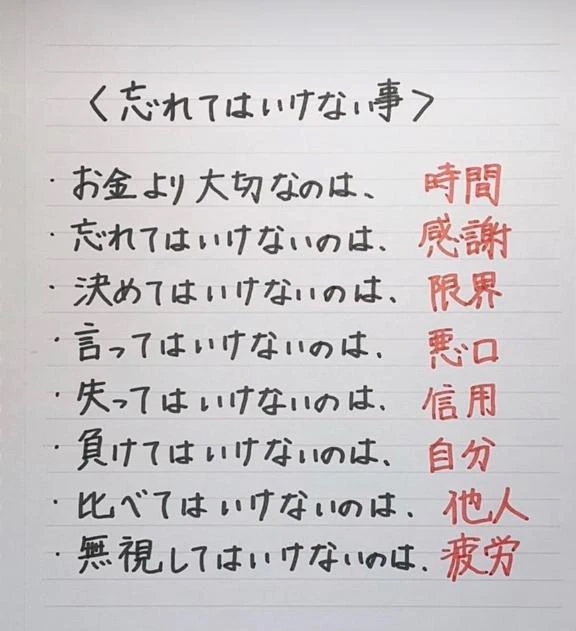 〈忘れてはいけない事〉
・お金より大切なのは、時間
・忘れてはいけないのは、感謝
・決めてはいけないのは、限界
・言ってはいけないのは、悪口
・失ってはいけないのは、信用
・負けてはいけないのは、自分
・比べてはいけないのは、他人
・無視してはいけないのは、疲労